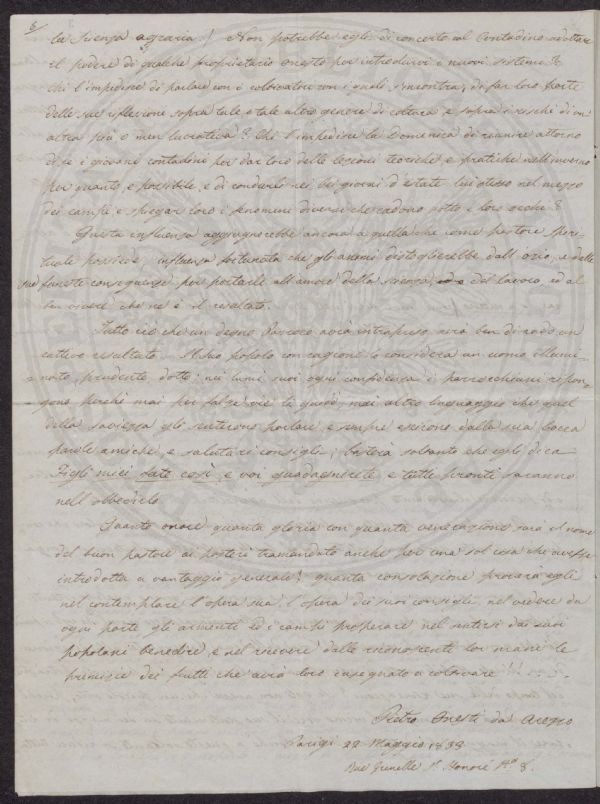 6/
la Scienza agraria! Non potrebbe egli di concerto col Contadino adattare
il podere di qualche proprietario onesto per introdurvi i nuovi sistemi?
Chi l'impedisce di parlare con i coltivatori con i quali s'incontra, di far loro parte
delle sue riflessioni sopra tale e tale altro genere di coltura e sopra i rischi di un
altra più o men lucrativa? Chi l'impedisce la Domenica di riunire attorno
di se i giovani contadini per dar loro delle lezioni teoriche e pratiche nell'inverno
per quanto è possibile, e di condurli nei bei giorni d'estate lui stesso nel mezzo
dei campi e spiegar loro i fenomeni diversi che cadono sotto i loro occhi?
Questa influenza aggiungerebbe ancora a quella che come pastore spirituale
possiede influenza fortunata che gli animi distoglierebbe dall'ozio, e dalle
sue funeste conseguenze per portarli all'amore della scienza, del lavoro, ed al
ben vivere che ne è il resultato.
Tutto ciò che un degno Parroco avrà intrapreso, avrà ben di rado un
cattivo resultato. Il suo popolo con ragione lo considera un uomo illumi-
nato, prudente, dotto; nei lumi suoi ogni confidenza i parrocchiani ripon-
gono perchè mai per false vie li guidò, mai altro linguaggio che quel
della saviezza gli sentirono parlare, e sempre escirono dalla sua bocca
parole amiche, e salutari consigli; basterà soltanto che egli dica
Figli miei fate così, e voi guadagnerete e tutti pronti saranno
nell'obbedirlo.
Quanto onore quanta gloria con quanta venerazione sarà il nome
del buon pastore ai posteri tramandato anche per una sol cosa che avesse
introdotta a vantaggio generale! quanta consolazione proverà egli
nel contemplare l'opera sua, l'opera dei suoi consigli, nel vedere da
ogni parte gli armenti ed i campi prosperare nel sentirsi dai suoi
popolani benedire, e nel ricevere dalle riconoscenti lor mani le
primizie dei frutti che avrà loro insegnato a coltivare!!!
Pietro Onesti da Arezzo
Parigi 22 Maggio 1839
Rue Grenelle St. Honoré No. 8.